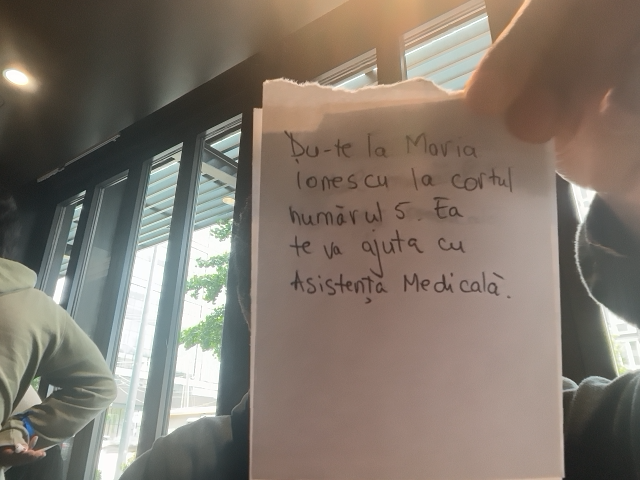 Du-te la Maria
Ionescu la cortul
numărul 5. Ea
te va ajuta cu
Asistență Medicală.